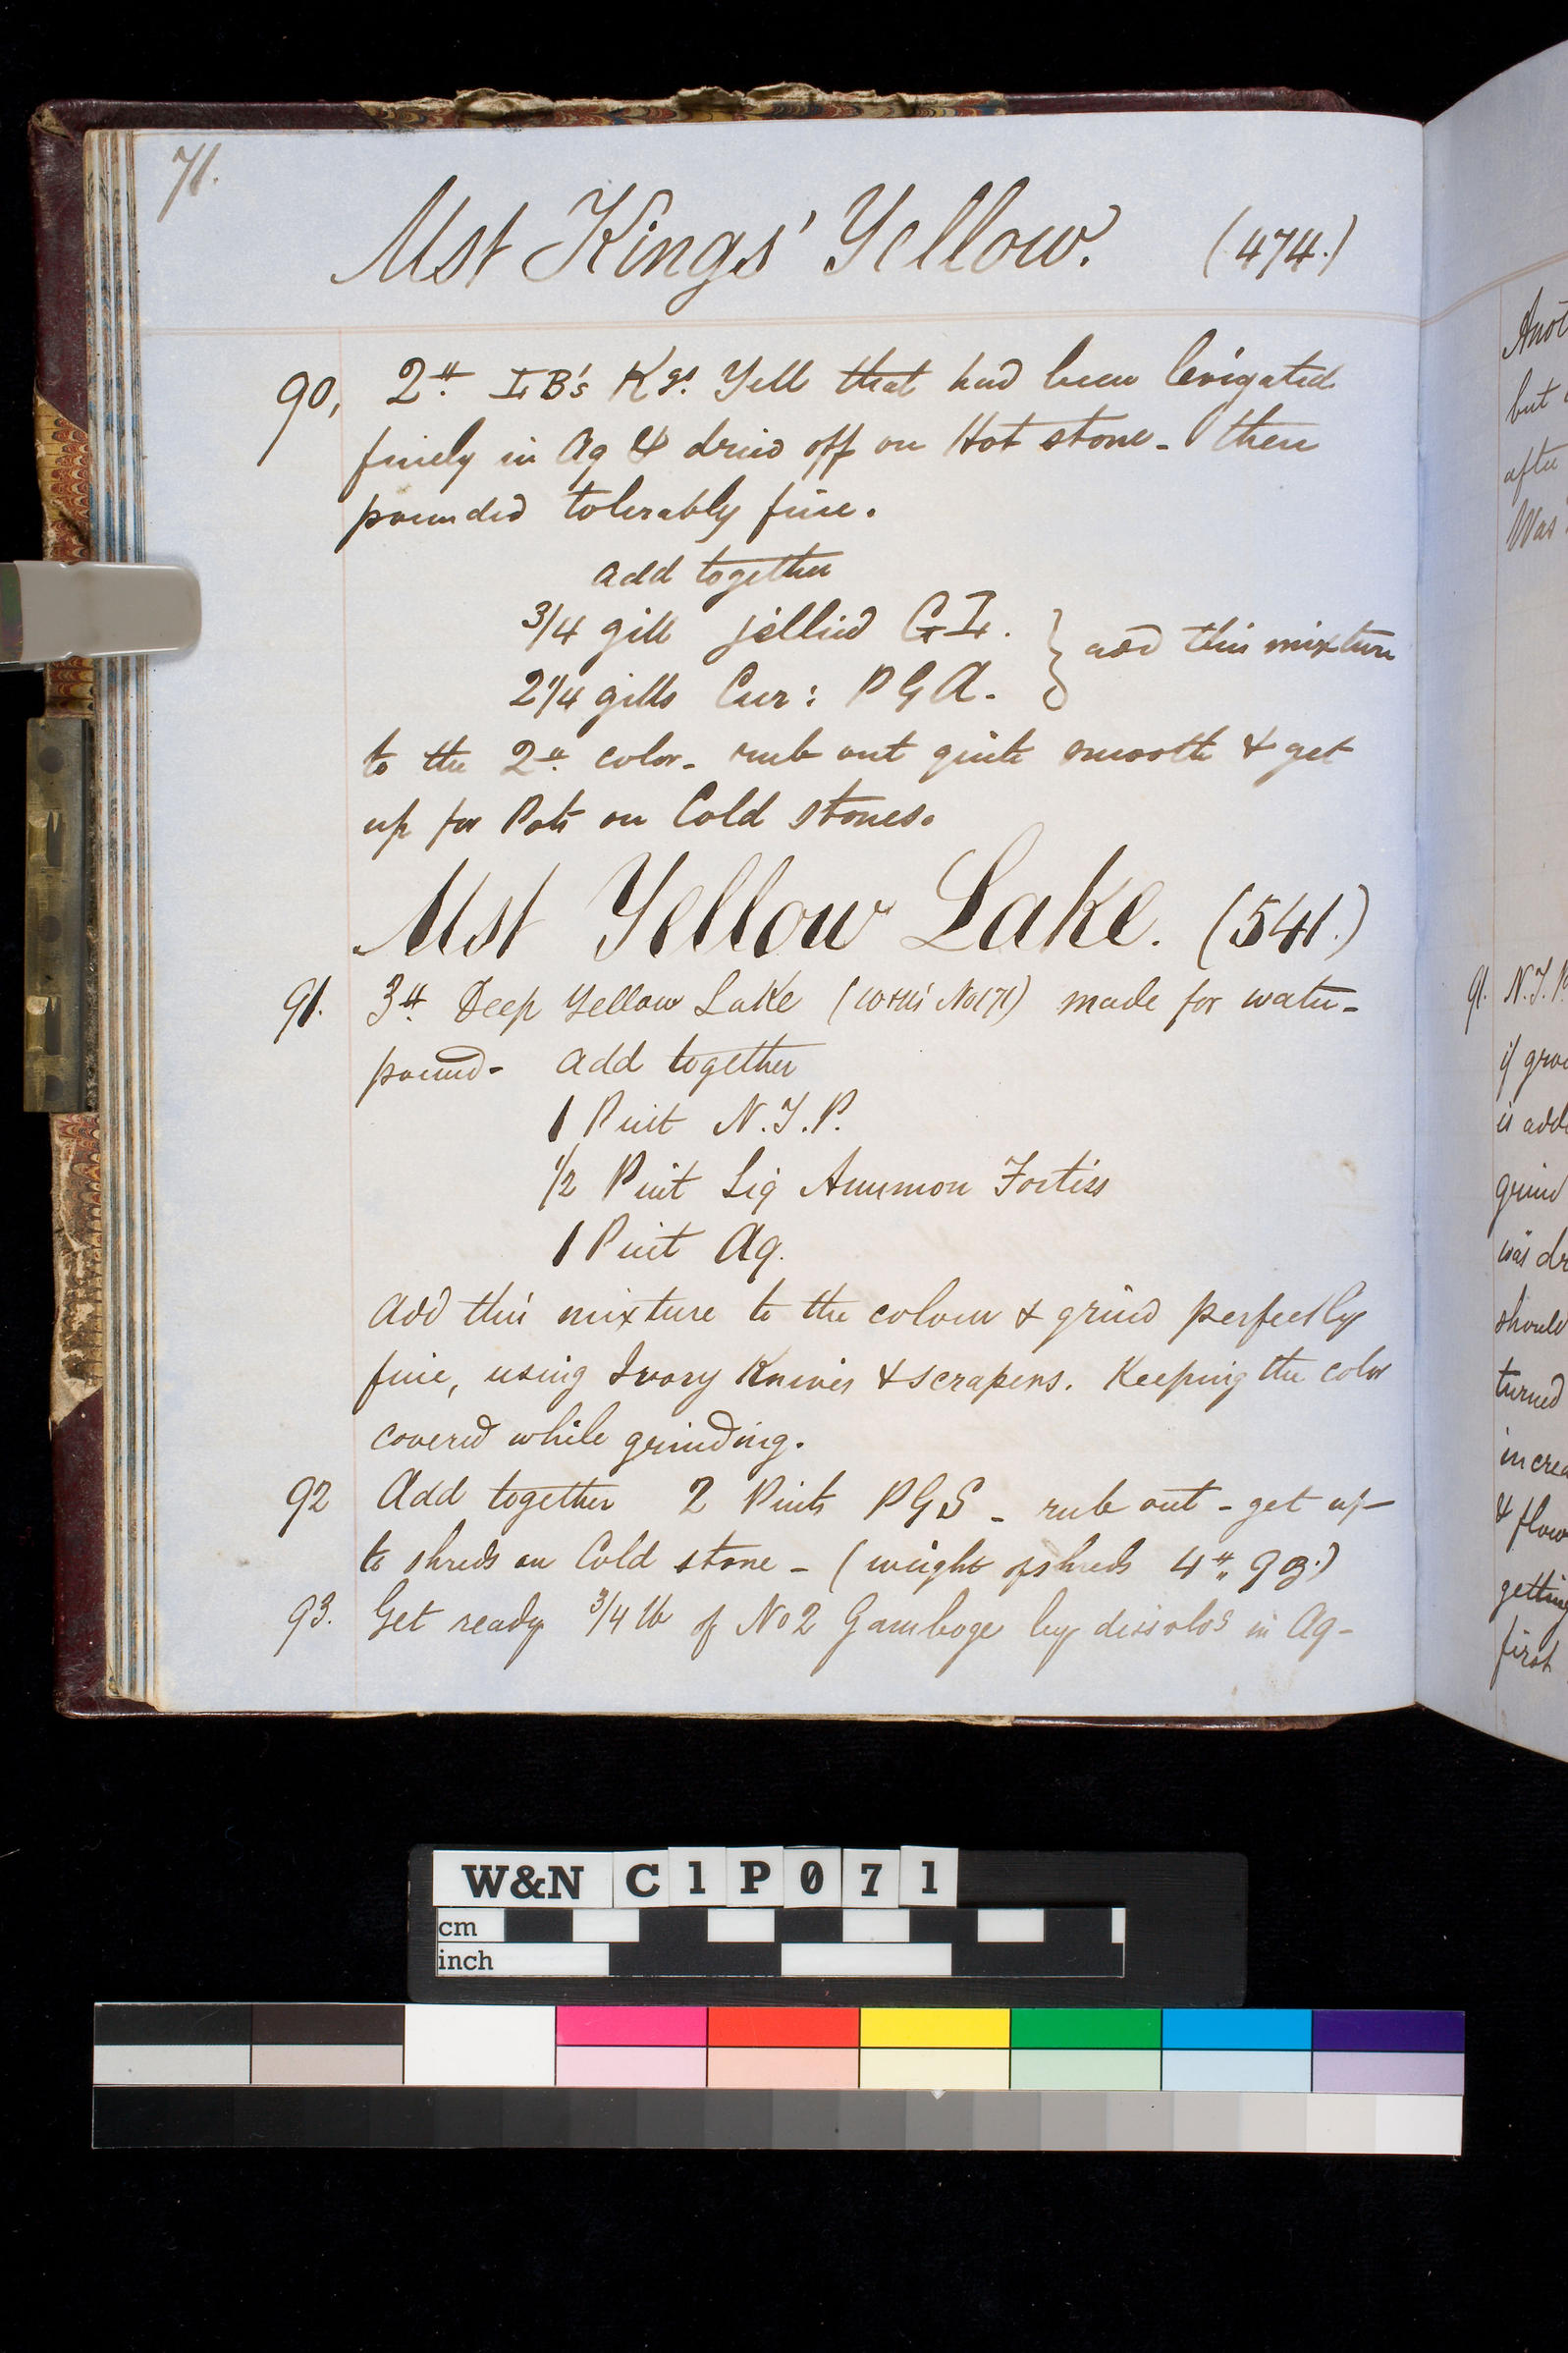 71.
Mst Kings' Yellow. (474.)
90, 2 ℔ LB's Kgs. Yell that had been levigated
finely in Aq & dried off on Hot stone - then
pounded tolerably fine.
add together
3/4 gill jellied G I.
2 1/4 gills Cur: P G A. } add this mixture
to the 2 ℔ color - rub out quite smooth & get
up for Pots on Cold stones.
Mst Yellow Lake. (541.)
91. 3 ℔ Deep Yellow Lake (works No 171) made for water -
pound - add together
1 Pint N. J. P.
1/2 Pint Liq Ammon Fortiss
1 Pint Aq.
Add this mixture to the colour & grind perfectly
fine, using Ivory Knives & scrapers. Keeping the color
covered while grinding.
92 Add together 2 Pints P G S - rub out - get up
to shreds on Cold stone - (weight of shreds 4 ℔ 9 oz.)
93. Get ready 3/4 lb of No 2 Gamboge by dissolvg in Aq -
Anot
but
after
Was
91. N. J. P.
if grou
is adde
grind
was dr
should
turned
increa
& flow
getting
first
W&N C1P071
cm
inch